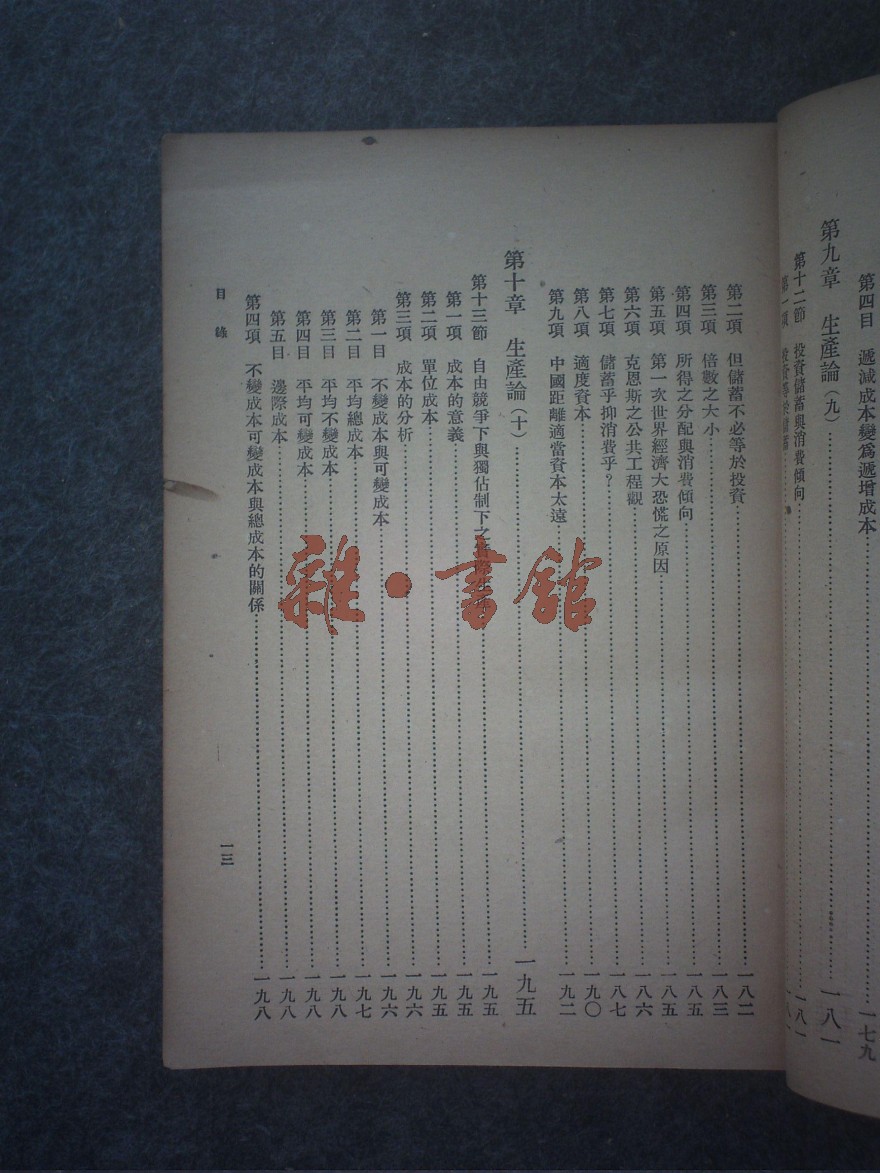 第四目 遞減成本變爲遞增成本……一七九
第九章 生產論（九）……一八一
第十二節 投資儲蓄與消費傾向……一八一
第一項 投資等於儲蓄……一八一
第二項 但儲蓄不必等於投資……一八二
第三項 倍數之大小……一八三
第四項 所得之分配與消費傾向……一八五
第五項 第一次世界經濟大恐慌之原因……一八五
第六項 克恩斯之公共工程觀……一八六
第七項 儲蓄乎抑消費乎？……一八七
第八項 適度資本……一九〇
第九項 中國距離適當資本太遠……一九二
第十章 生產論（十）……一九五
第十三節 自由競爭下與獨佔制下之……一九五
第一項 成本的意義……一九五
第二項 單位成本……一九五
第三項 成本的分析……一九六
第一目 不變成本與可變成本……一九六
第二目 平均總成本……一九七
第三目 平均不變成本……一九八
第四目 平均可變成本……一九八
第五目 邊際成本……一九八
第四項 不變成本可變成本與總成本的關係……一九八
目錄
一三
雜·書館